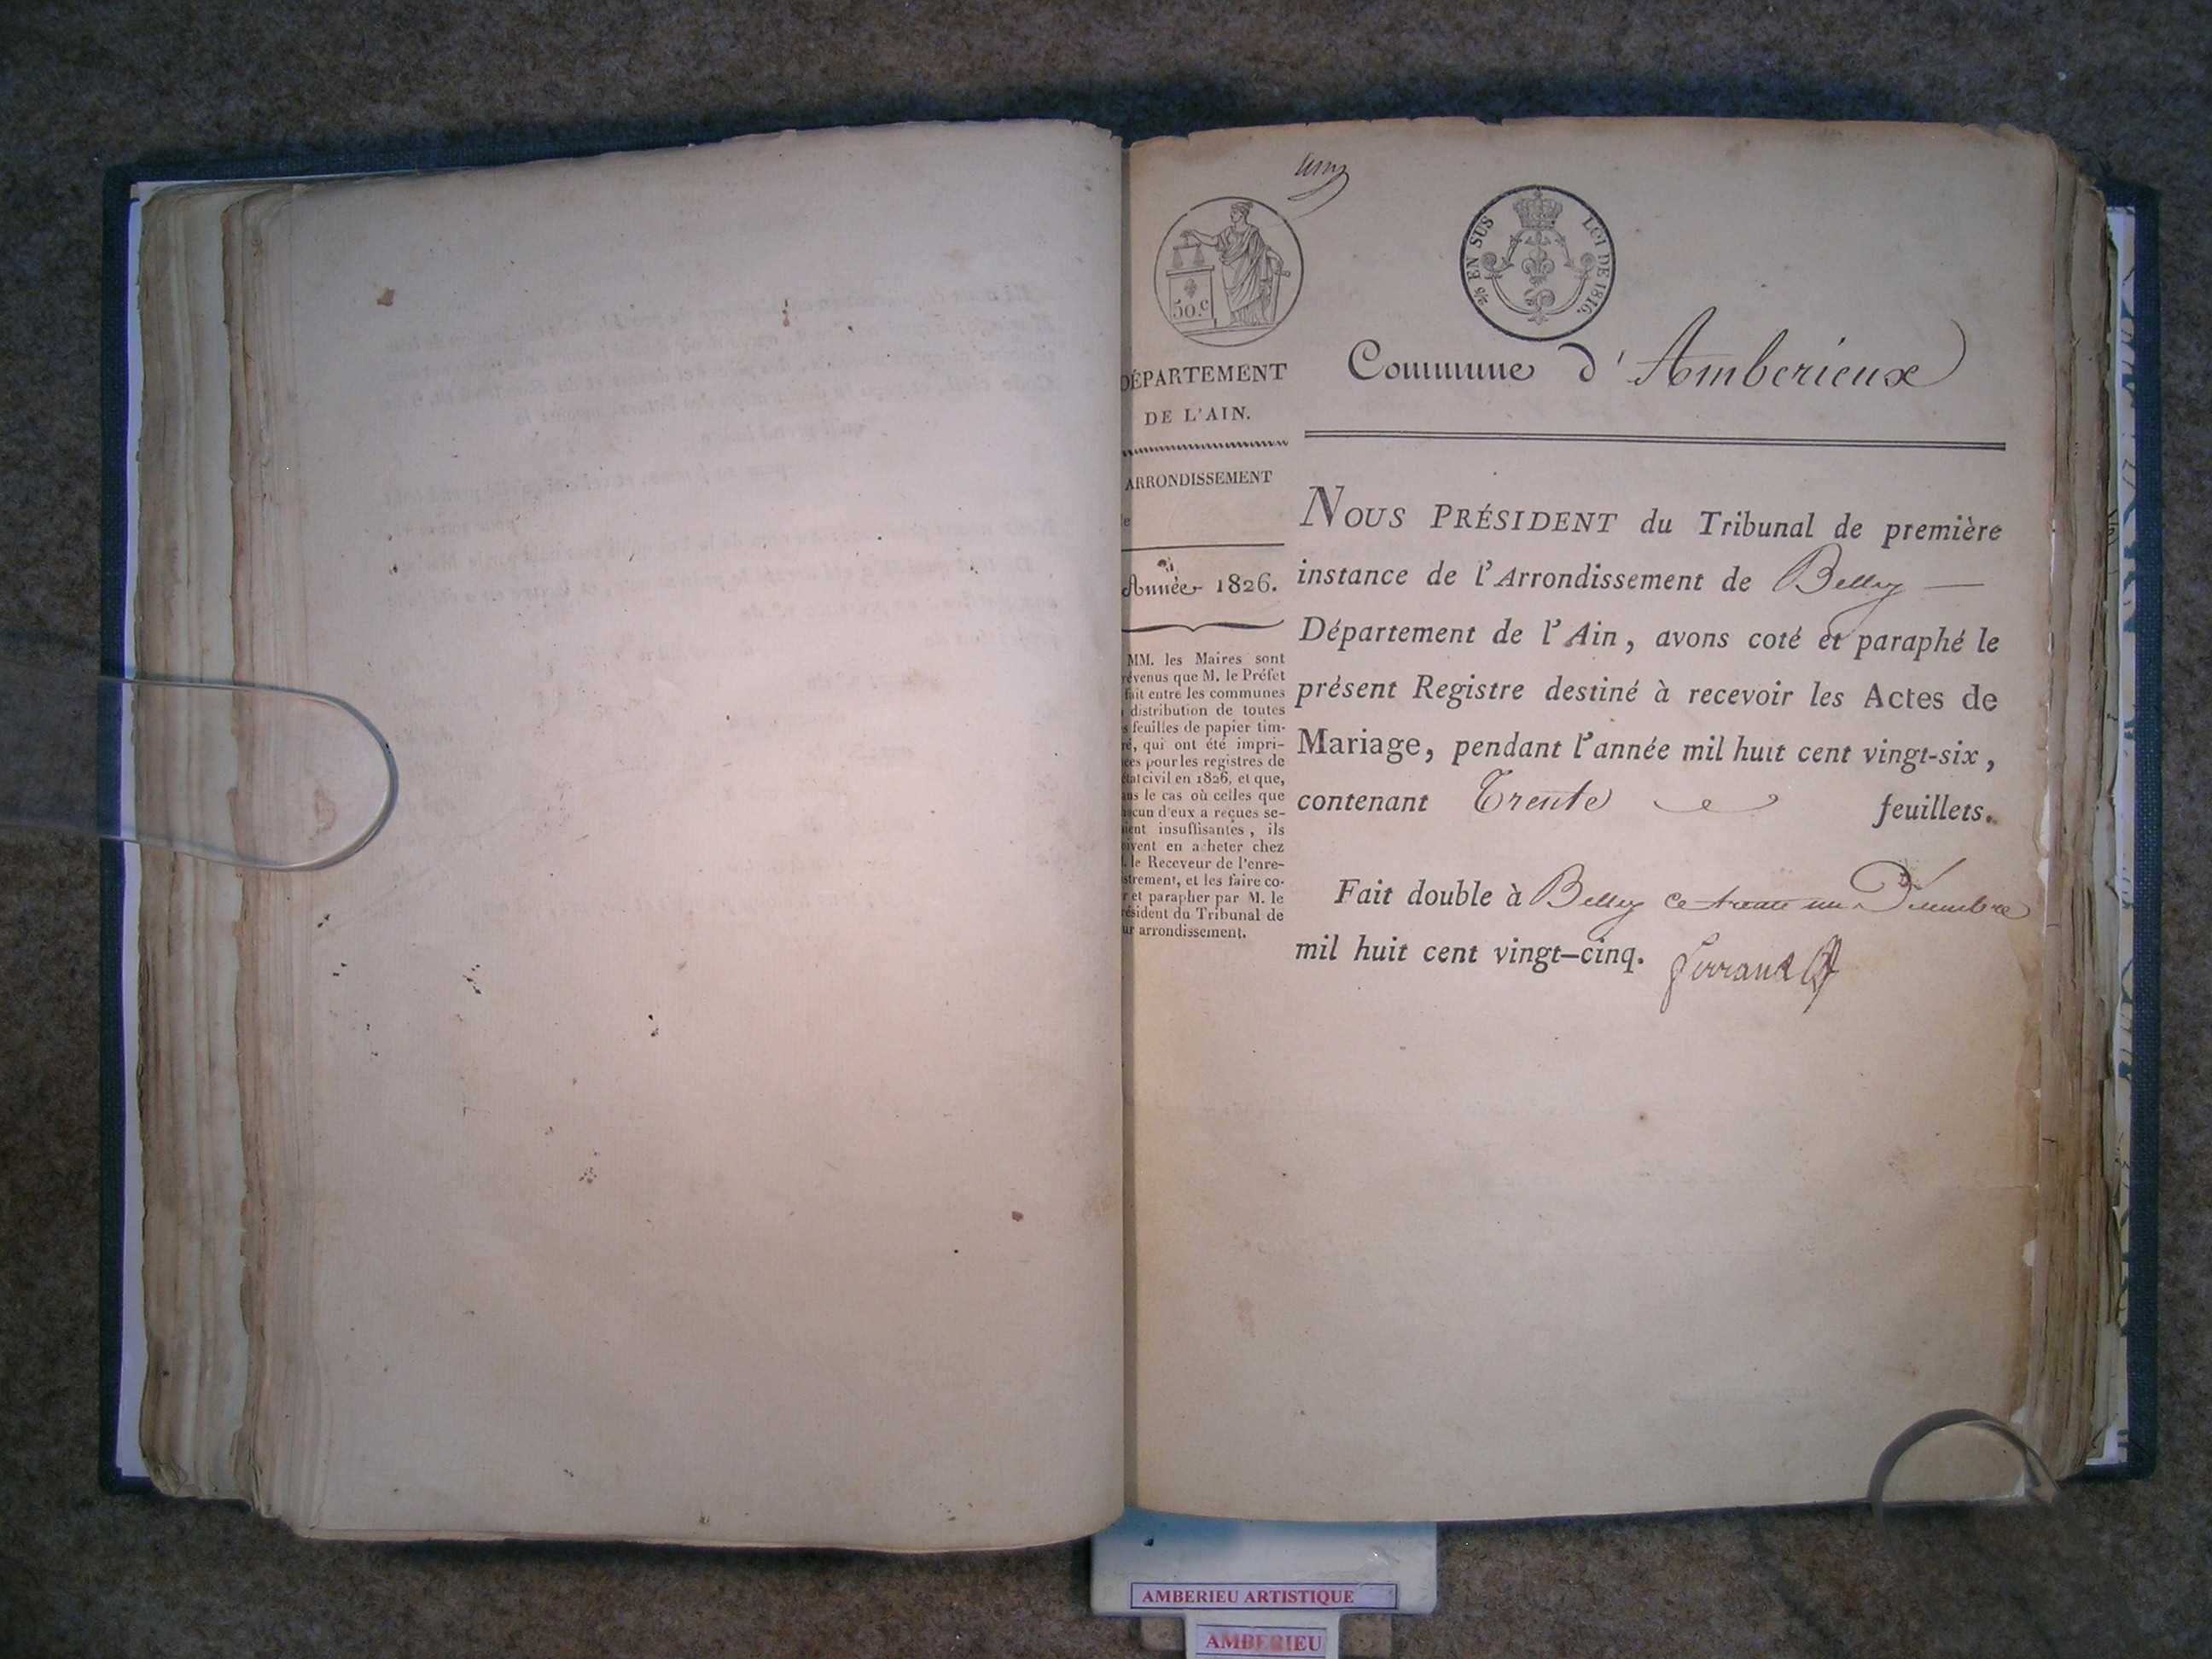 50.c
2/5 EN SUS LOI DE 1816.
Commune d'Amberieux
DÉPARTEMENT
DE L'AIN.
ARRONDISSEMENT
Année 1826.
MM. les Maires sont
révenus que M. le Préfet
fait entre les communes
distribution de toutes
s feuilles de papier tim-
ré, qui ont été impri-
ées pour les registres de
état civil en 1826, et que,
ans le cas où celles que
acun d'eux a reçues se-
ient insuffisantes, ils
oivent en acheter chez
le Receveur de l'enre-
strement, et les faire co-
r et parapher par M. le
résident du Tribunal de
ur arrondissement.
NOUS PRÉSIDENT du Tribunal de première
instance de l'Arrondissement de Belley
Département de l'Ain, avons coté et paraphé le
présent Registre destiné à recevoir les Actes de
Mariage, pendant l'année mil huit cent vingt-six,
contenant Trente feuillets.
Fait double à Belley ce trente un Décembre
mil huit cent vingt-cinq.
AMBERIEU ARTISTIQUE
AMBERIEU